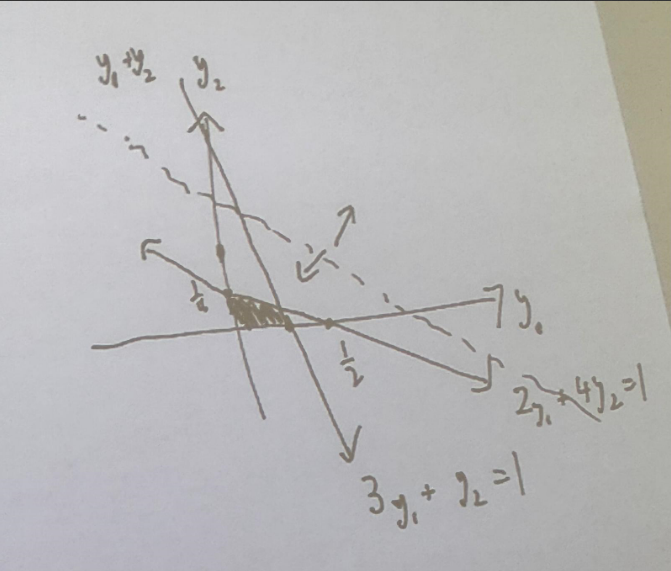 y₁+y₂
y₂
1/4
y₁
1/2
2y₁ + 4y₂ = 1
3y₁ + y₂ = 1